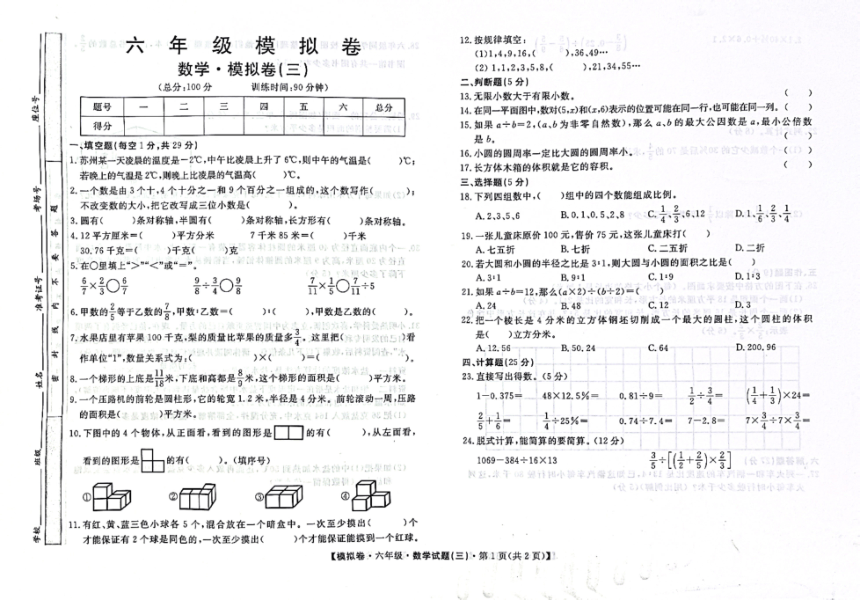 六 年 级 模 拟 卷
数学·模拟卷(三)
(总分:100分 训练时间:90分钟)
题号 一 二 三 四 五 六 总分
得分
一、填空题(每空1分,共29分)
1.苏州某一天凌晨的温度是-2℃,中午比凌晨上升了6℃,则中午的气温是( )℃;
若晚上的气温是2℃,则晚上比凌晨气温高( )℃。
2.一个数是由3个十,4个十分之一和9个百分之一组成的,这个数写作( );
不改变数的大小,把它改写成三位小数是( )。
3.圆有( )条对称轴,半圆有( )条对称轴,长方形有( )条对称轴。
4.12平方厘米=( )平方分米 7千米85米=( )千米
30.76千克=( )千克( )克
5.在○里填上“>”“<”或“=”。
6/7×2/3○6/7 9/8÷3/4○9/8 7/11×1/5○7/11÷5
6.甲数的2/3等于乙数的7/8,甲数:乙数=( ):( ),甲数是乙数的( )。
7.水果店里有苹果100千克,梨的质量比苹果的质量多3/4。这里把( )看
作单位“1”,数量关系式为:( )×( )=( )。
8.一个梯形的上底是11/18米,下底和高都是8/9米,这个梯形的面积是( )平方米。
9.一个压路机的前轮是圆柱形,它的轮宽1.2米,半径是4分米。前轮滚动一周,压路
的面积是( )平方米。
10.下图中的4个物体,从正面看,看到的图形是 的有( ),从左面看,
看到的图形是 的有( )。(填序号)
① ② ③ ④
11.有红、黄、蓝三色小球各5个,混合放在一个暗盒中。一次至少摸出( )个
才能保证有2个球是同色的,一次至少摸出( )个才能保证能摸到一个红球。
12.按规律填空:
(1)1,4,9,16,( ),36,49…
(2)1,1,2,3,5,8,( ),21,34,55…
二、判断题(5分)
13.无限小数大于有限小数。 ( )
14.在同一平面图中,数对(5,x)和(x,6)表示的位置可能在同一行,也可能在同一列。( )
15.如果a÷b=2,(a、b为非零自然数),那么a、b的最大公因数是a,最小公倍数
是b。 ( )
16.小圆的圆周率一定比大圆的圆周率小。 ( )
17.长方体木箱的体积就是它的容积。 ( )
三、选择题(5分)
18.下列四组数中,( )组中的四个数能组成比例。
A.2、3、5、6 B.0.1、0.5、2、8 C.1/4、2/3、6、12 D.1、1/6、2/3、1/4
19.一张儿童床原价100元,售价75元,这张儿童床打( )
A.七五折 B.七折 C.二五折 D.二折
20.若大圆和小圆的半径之比是3:1,则大圆与小圆的面积之比是( )
A.3:1 B.9:1 C.1:9 D.1:3
21.如果a÷b=12,那么(a×2)÷(b÷2)=( )
A.24 B.48 C.12 D.3
22.把一个棱长是4分米的立方体钢坯切削成一个最大的圆柱,这个圆柱的体积
是( )立方分米。
A.12.56 B.50.24 C.64 D.200.96
四、计算题(25分)
23.直接写出得数。(5分)
1-0.375= 48×12.5%= 0.81÷9= 1/2÷3/4= (1/4+1/3)×24=
2/5+1/6= 1/4÷25%= 0.74÷7.4= 7-2.8= 7×3/4÷7×3/4=
24.脱式计算,能简算的要简算。(12分)
1069-384÷16×13 3/5÷[(1/2+2/5)×2/3]
【模拟卷·六年级·数学试题(三)·第1页(共2页)】
学校
班级
姓名
准考证号
考场号
座位号
密 封 线 内 不 要 答 题